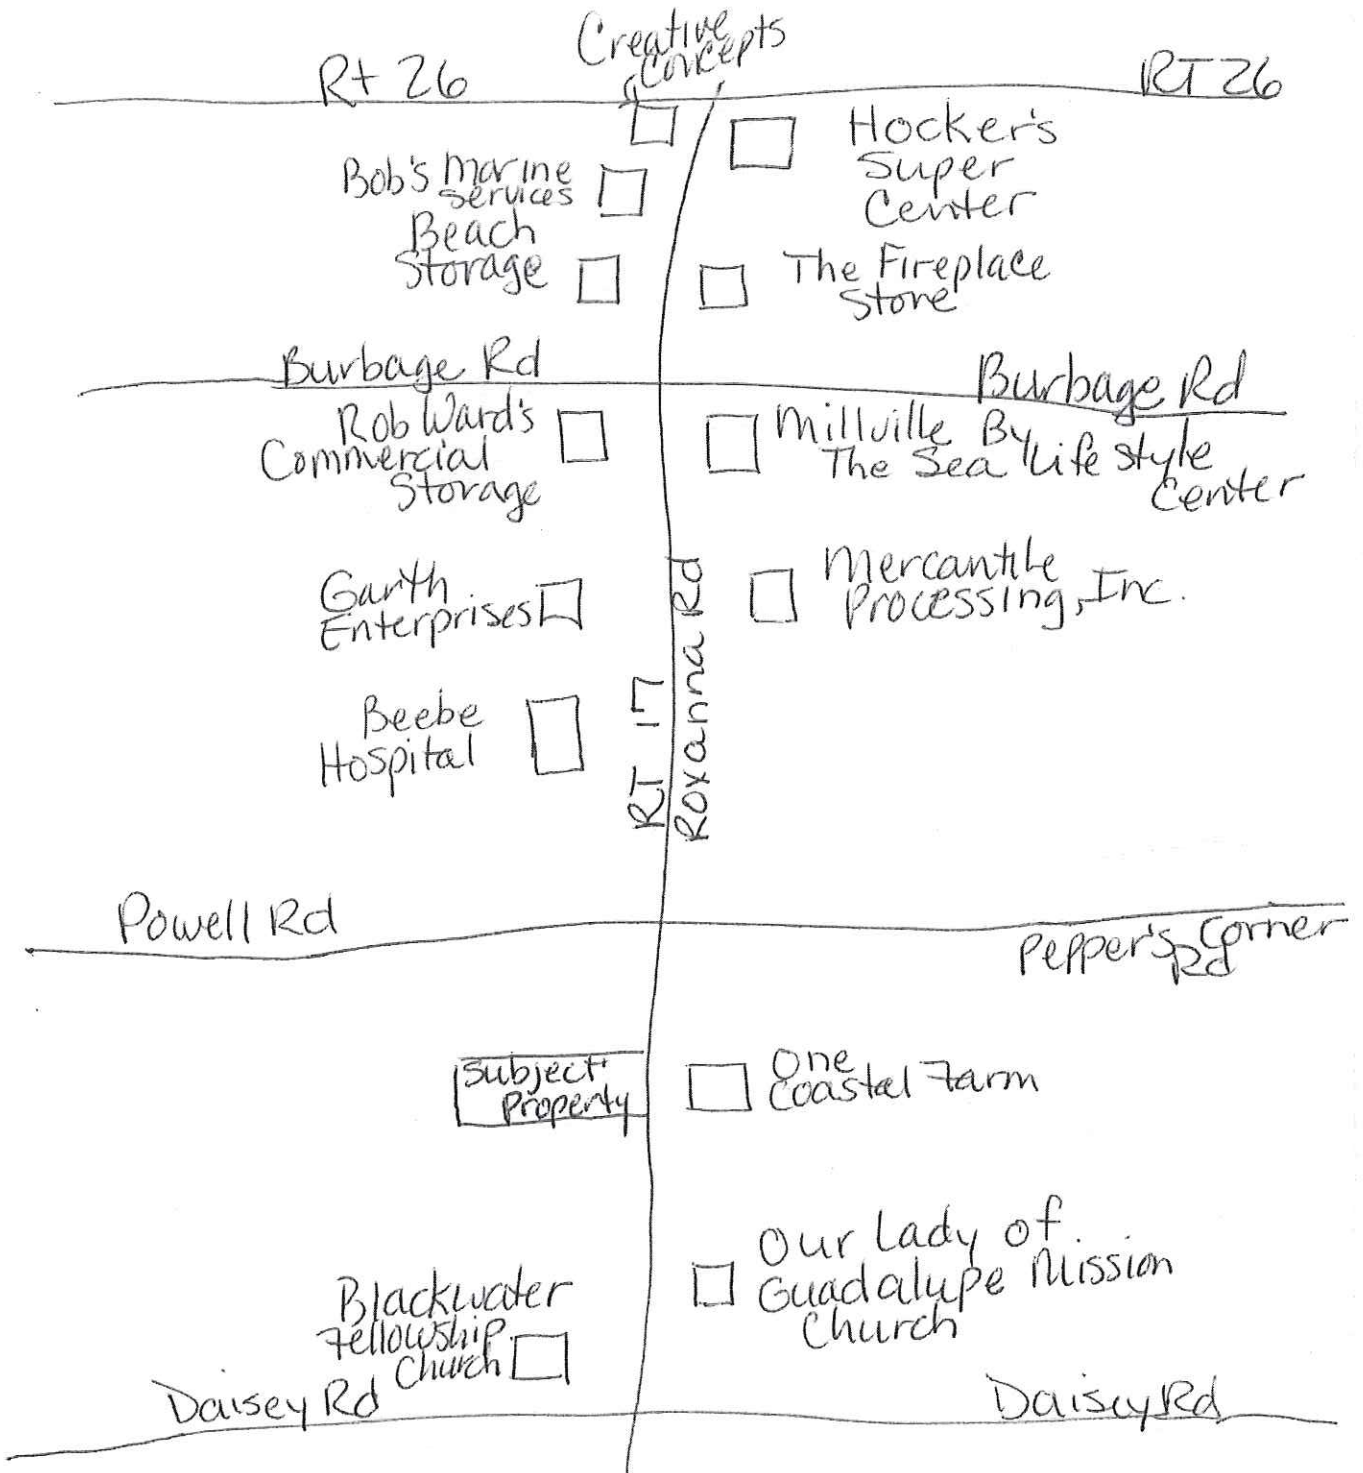 Creative
Concepts
Rt 26
RT 26
Hocker's
Super
Center
Bob's Marine
Services
Beach
Storage
The Fireplace
Store
Burbage Rd
Burbage Rd
Rob Ward's
Commercial
Storage
Millville By
The Sea Life Style
Center
Garth
Enterprises
Mercantile
Processing, Inc.
RT 17
Roxanna Rd
Beebe
Hospital
Powell Rd
Pepper's Corner
Rd
Subject
Property
One
Coastal Farm
Our Lady of
Guadalupe Mission
Church
Blackwater
Fellowship
Church
Daisey Rd
Daisey Rd